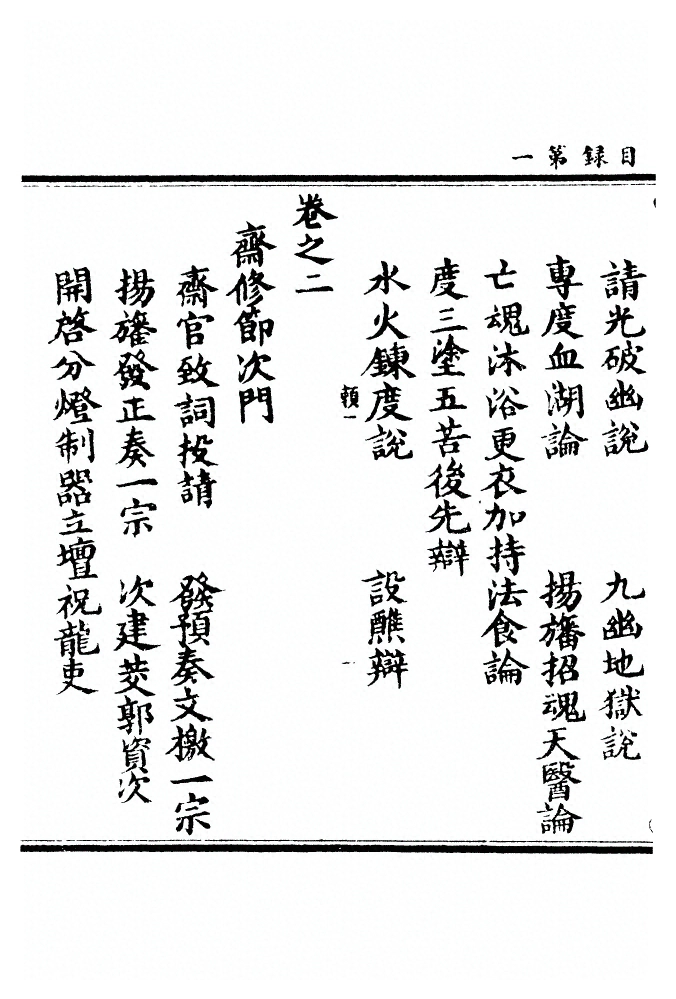 目録第一
請光破幽說　九幽地獄說
專度血湖論　揚旛招魂天醫論
亡魂沐浴更衣加持法食論
度三塗五苦後先辯
水火鍊度說　設醮辯
賴一
卷之二
齋修節次門
齋官致詞投請　發預奏文檄一宗
揚旛發正奏一宗　次建茭郭資次
開啓分燈制器立壇祝龍吏